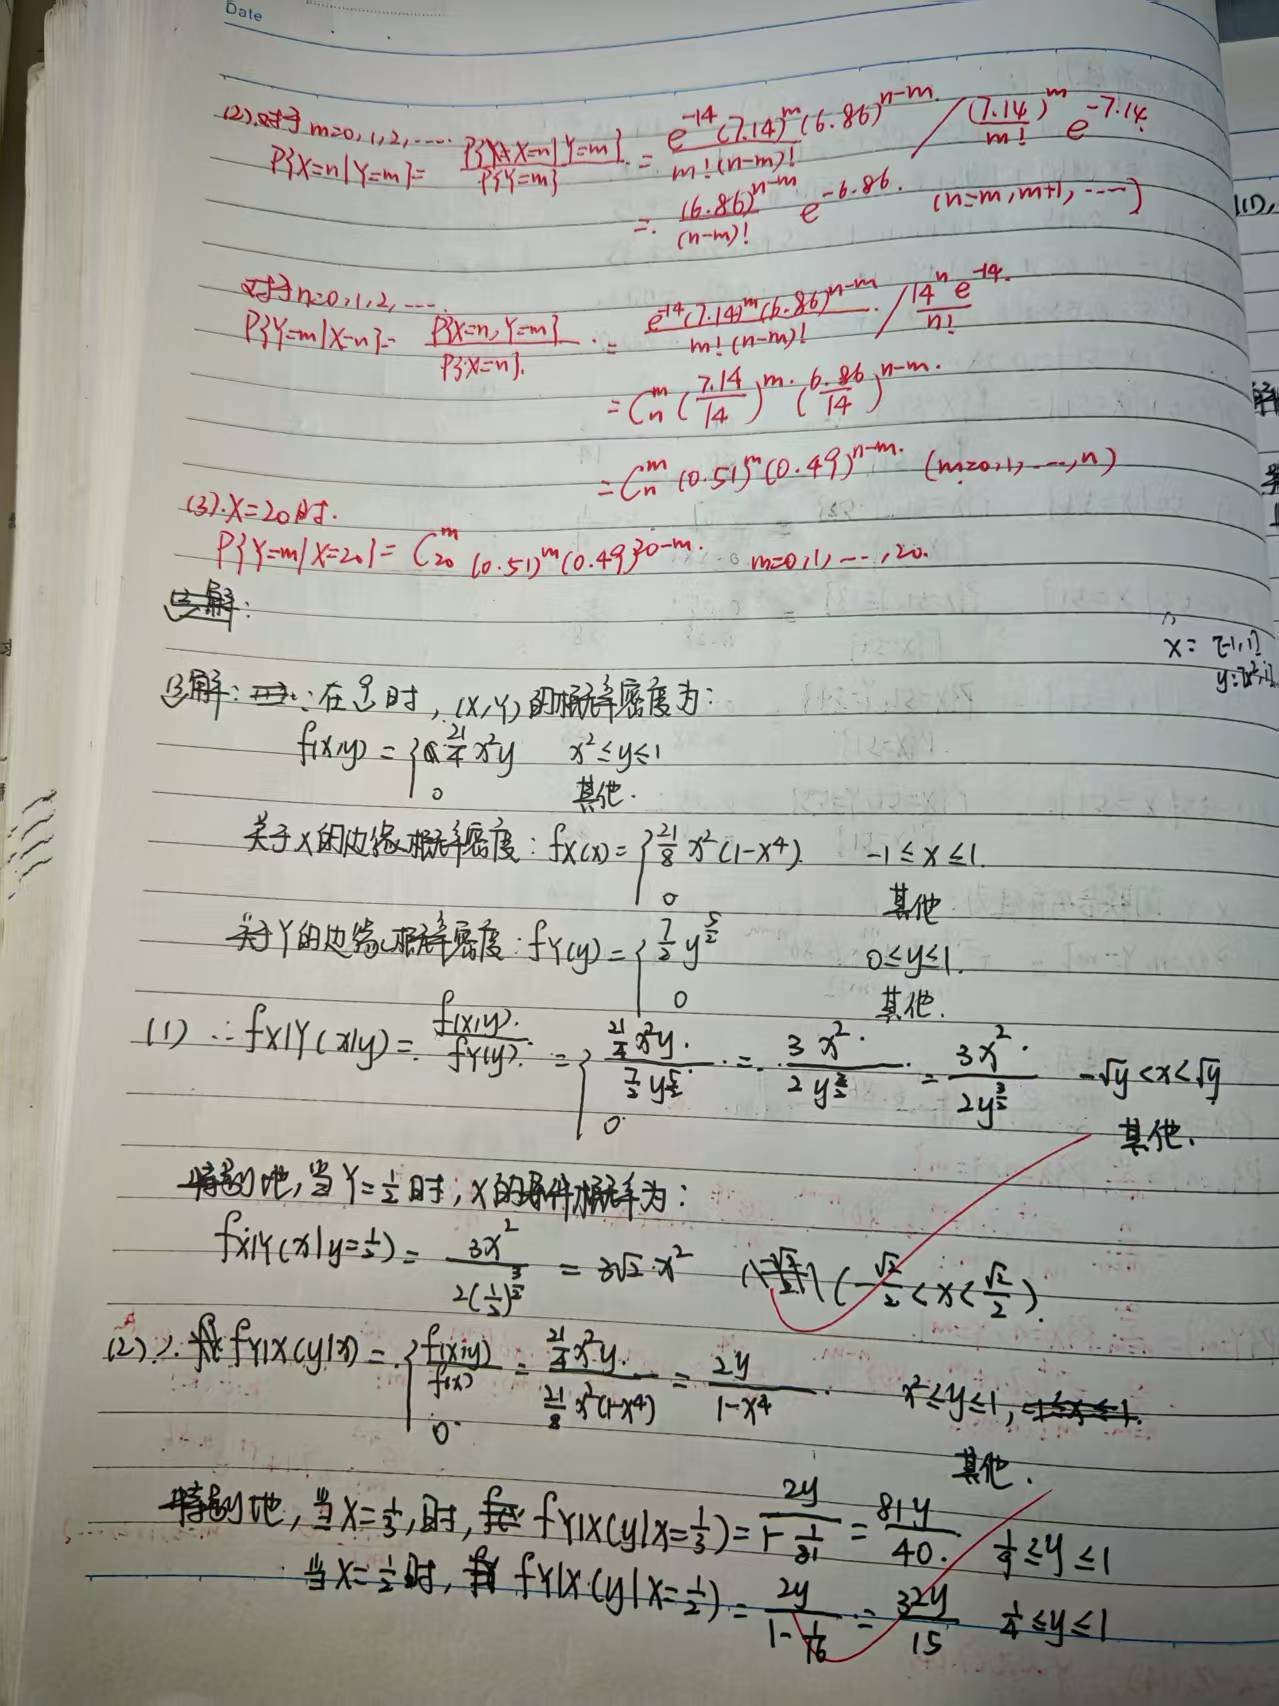 Date
(2).对于m=0,1,2,····
P{X=n|Y=m}= P{X=n|Y=m}/P{Y=m} = e^-14(7.14)^m(6.86)^n-m/m!(n-m)! / (7.14)^m/m! e^-7.14
= (6.86)^n-m/(n-m)! e^-6.86. (n=m,m+1,····)
对于n=0,1,2,····
P{Y=m|X=n}= P{X=n,Y=m}/P{X=n}. = e^-14(7.14)^m(6.86)^n-m/m!(n-m)! / 14^n e^-14/n!
= C_n^m (7.14/14)^m·(6.86/14)^n-m.
= C_n^m (0.51)^m(0.49)^n-m. (m=0,1,····,n)
(3).X=20时.
P{Y=m|X=20}= C_20^m (0.51)^m(0.49)^20-m. m=0,1,···,20.
解:
x= [-1,1]
13解: ∵在9时,(X,Y)的概率密度为:
f(x,y) = { 21/4 x²y x²≤y≤1
0 其他.
关于X的边缘概率密度: fX(x)= { 21/8 x²(1-x⁴). -1≤x≤1.
0 其他
关于Y的边缘概率密度: fY(y)= { 7/2 y^5/2 0≤y≤1.
0 其他.
(1) ∴fX|Y(x|y)= f(x,y)/fY(y) = { 21/4 x²y/7/2 y^5/2 = 3x²/2y^3/2 = 3x²/2y^3/2 -√y<x<√y
0 其他.
特别地,当Y=1/2时,X的条件概率为:
fX|Y(x|y=1/2)= 3x²/2(1/2)^3/2 = 3√2·x² (-√2/2<x<√2/2).
(2)∴ fY|X(y|x) = { f(x,y)/f(x) = 21/4 x²y/21/8 x²(1-x⁴) = 2y/1-x⁴ x²≤y≤1,
0 其他.
特别地,当X=1/3,时, fY|X(y|x=1/3)= 2y/1-1/81 = 81y/40. 1/9≤y≤1
当X=1/2时, fY|X(y|X=1/2)= 2y/1-1/16 = 32y/15 1/4≤y≤1